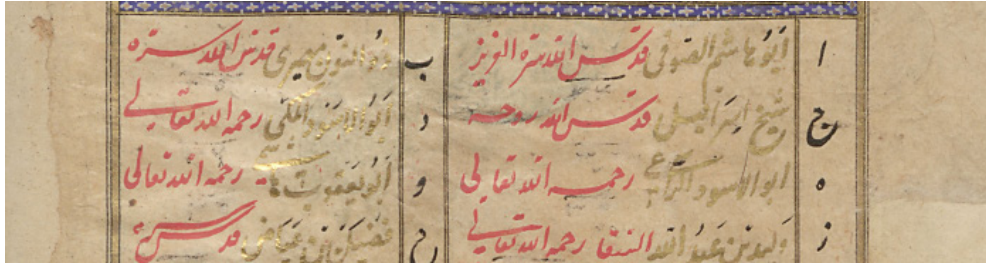 ا ابوهاشم الصوفی قدس الله سره العزیز ب ذوالنون مصری قدس الله سره
ج شیخ اسرافیل قدس الله روحه د ابوالاسود المکی رحمه الله تعالی
ه ابوالاسود الراعی رحمه الله تعالی و ابویعقوب رحمه الله تعالی
ز ولید بن عبدالله السقا رحمه الله تعالی ح فضیل بن عیاض قدس سره